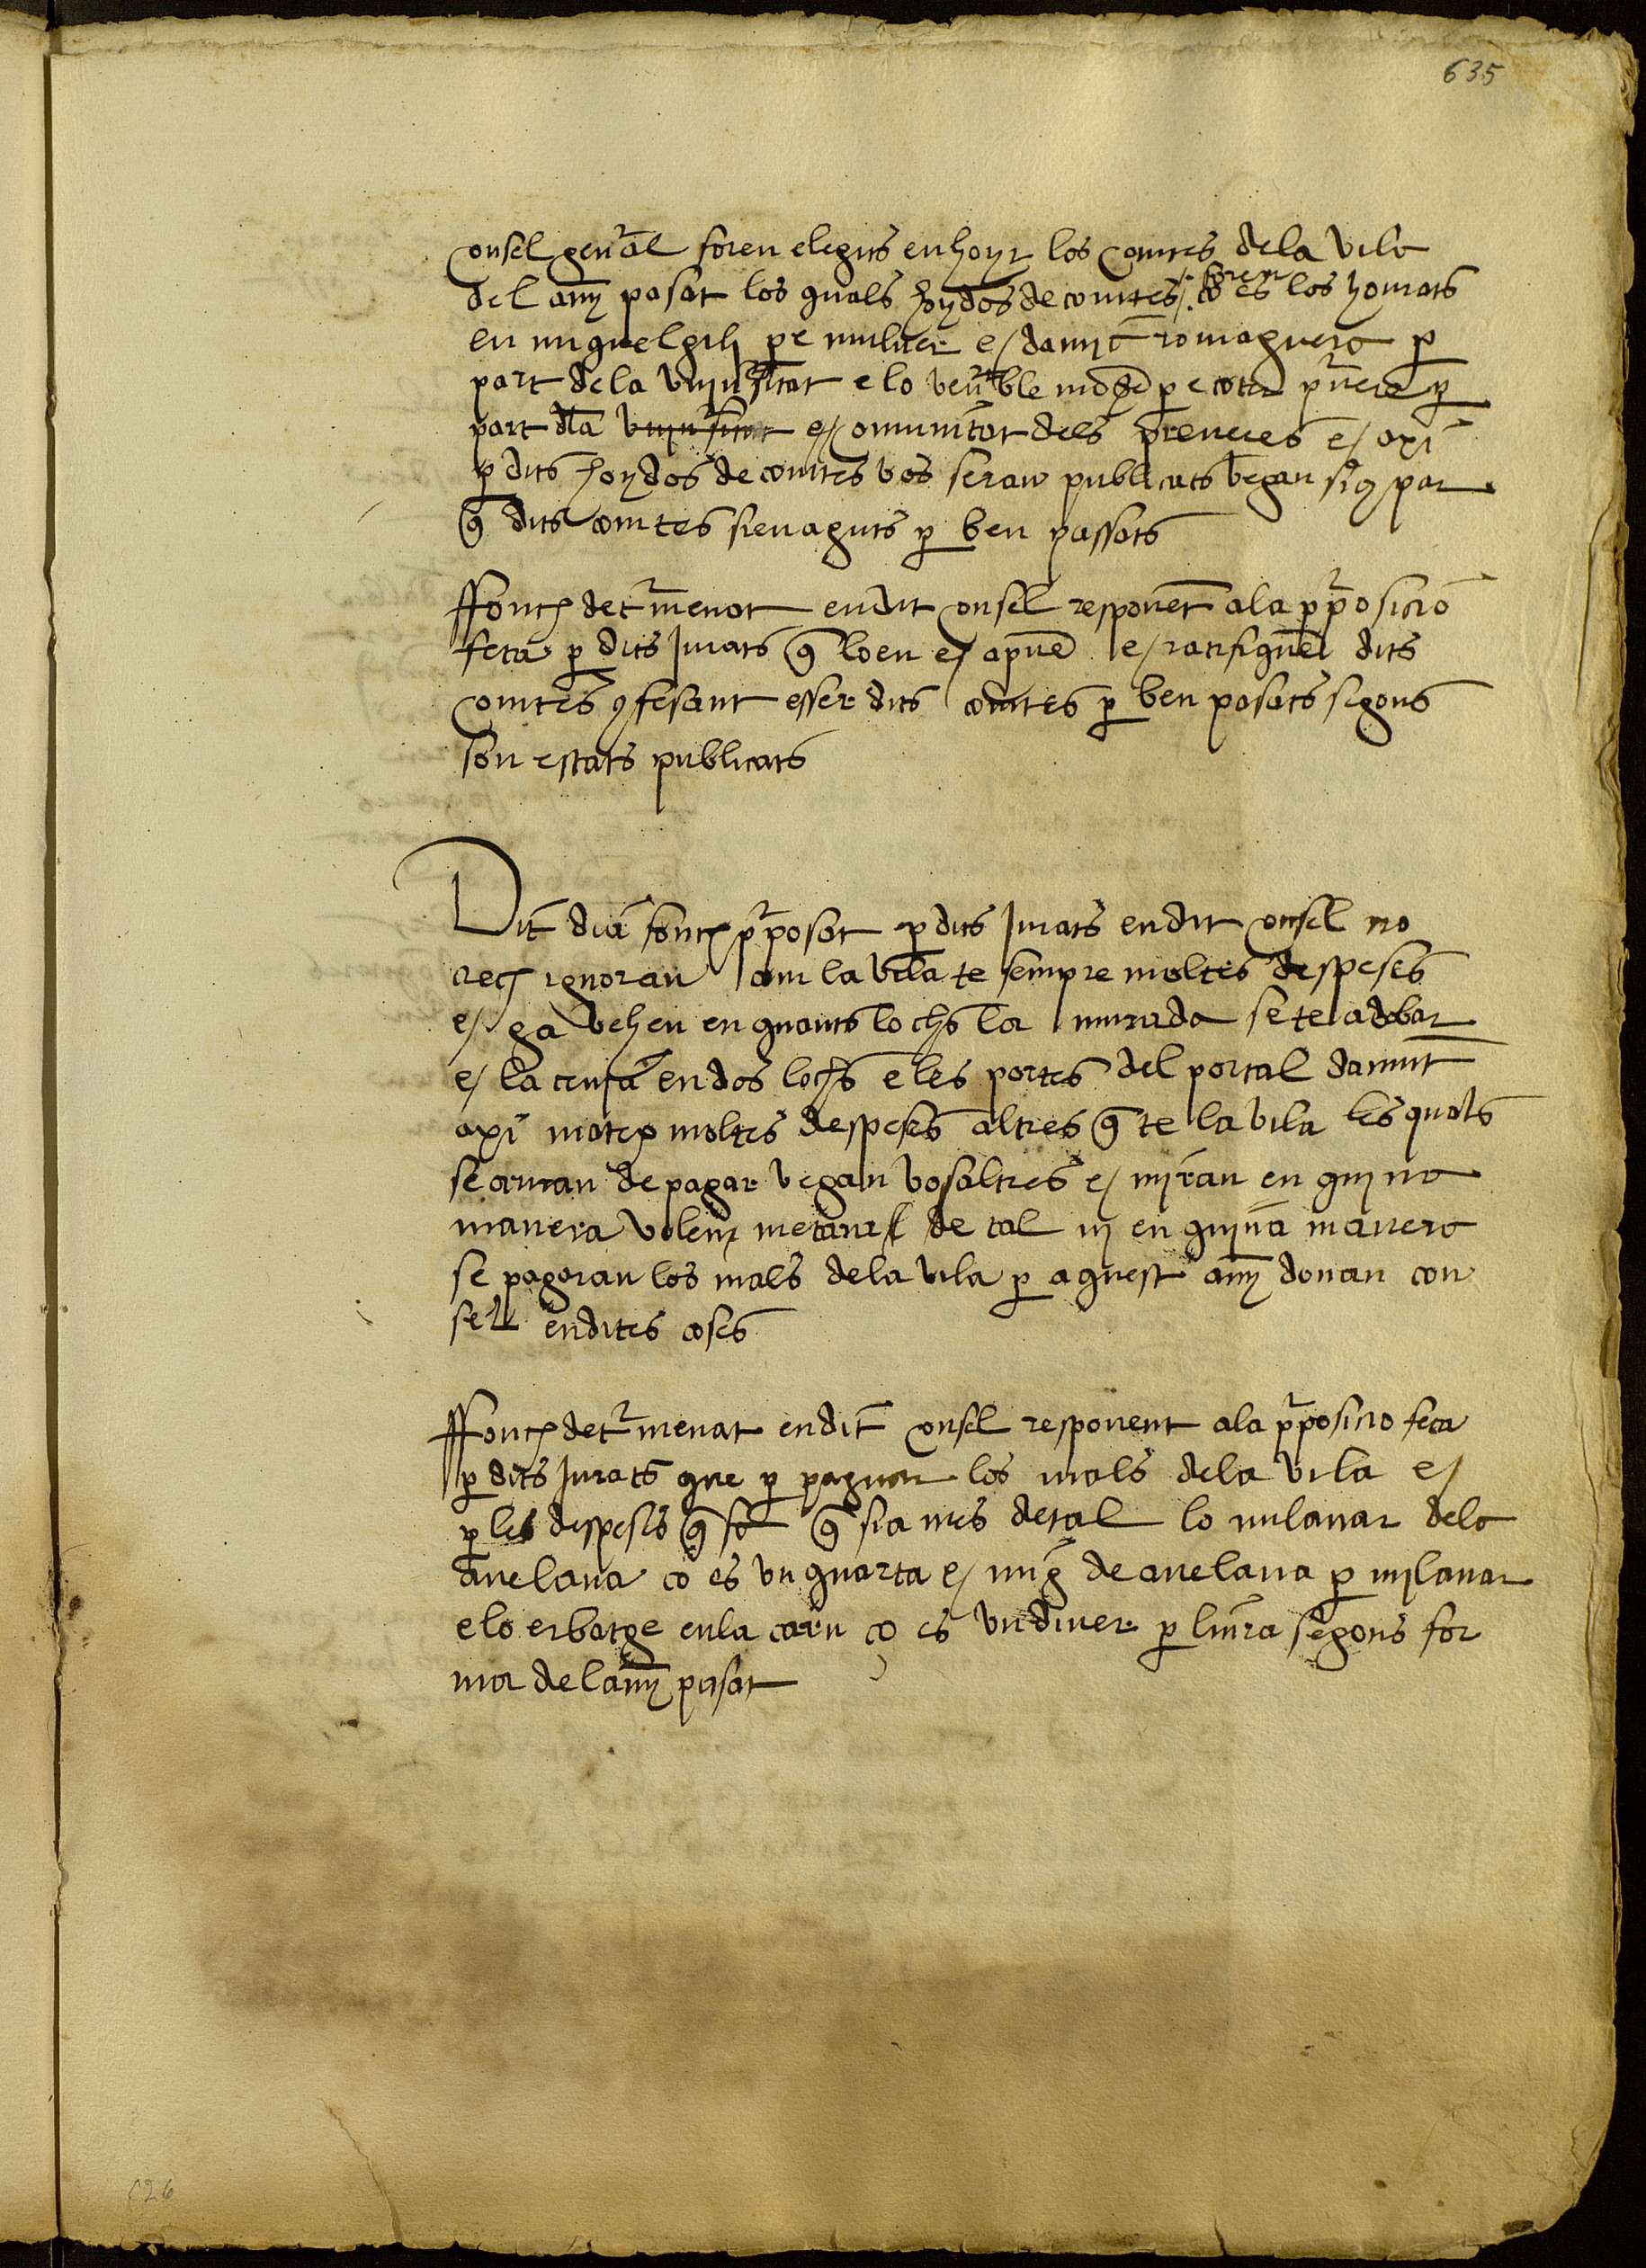 635
consel genal foren elegits en hoyr los comtes de la vila
del any pasat los quals hoydos de comtes foren ço es los honrats
en miquel gili pe muluer e damia romaguera p
part de la vniusitat e lo venble mossen pe coter pvere p
part dla vniusitat e comunitat dels preveres e axi
p dits hoydos de comtes vos seran publicats vegan sius par
q dits comtes sien aguts p ben passats
ffonch detmenat en dit consel responent a la pposicio
feta p dits Jurats q loen e apven e ratifiquen dits
comtes confesant esser dits comtes p ben pasats segons
son estats publicats
Dit dia fonch pposat p dits Jurats en dit consel no
crech ignoran com la vila te sempre moltes despeses
e ga vehen en quants lochs la murada se te adobar
e la cequia en dos lochs e les portes del portal damunt
axi matex moltes despeses altres q te la vila les quals
se auran de pagar vegan vosaltres e miran en quina
manera volem metam de tal ni en quina manera
se pagaran los mals de la vila p aquest any donan con
sell en dites coses
ffonch detmenat en dit consel responent a la pposicio feta
p dits Jurats que p paguar los mals de la vila e
p les despeses q fa q sia mes de tal lo milanar dela
auelana ço es vn quarta e mig de auelana p milanar
e lo erbatge en la carn ço es vn diner p liura segons for
ma de lany pasat
626